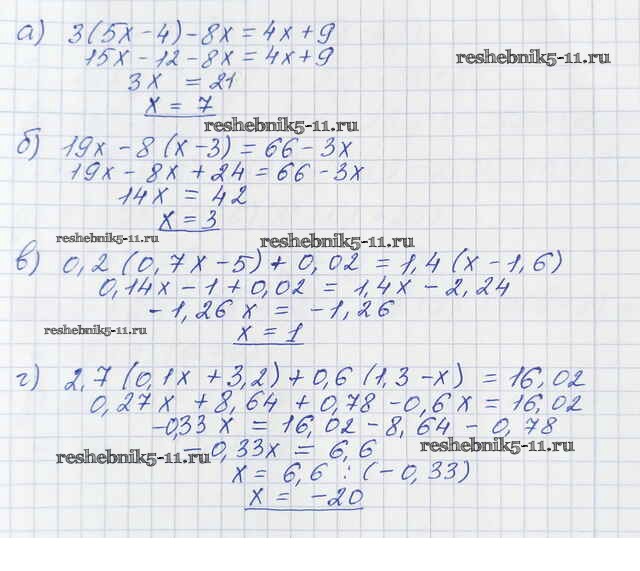 а) 3(5x-4)-8x=4x+9
15x-12-8x=4x+9
reshebnik5-11.ru
3x = 21
x = 7
reshebnik5-11.ru
б) 19x-8(x-3)=66-3x
19x-8x+24=66-3x
14x = 42
x = 3
reshebnik5-11.ru
reshebnik5-11.ru
в) 0,2(0,7x-5)+0,02=1,4(x-1,6)
0,14x-1+0,02=1,4x-2,24
-1,26x = -1,26
reshebnik5-11.ru
x = 1
г) 2,7(0,1x+3,2)+0,6(1,3-x)=16,02
0,27x+8,64+0,78-0,6x=16,02
-0,33x=16,02-8,64-0,78
-0,33x=6,6
reshebnik5-11.ru
reshebnik5-11.ru
x=6,6:(-0,33)
x = -20